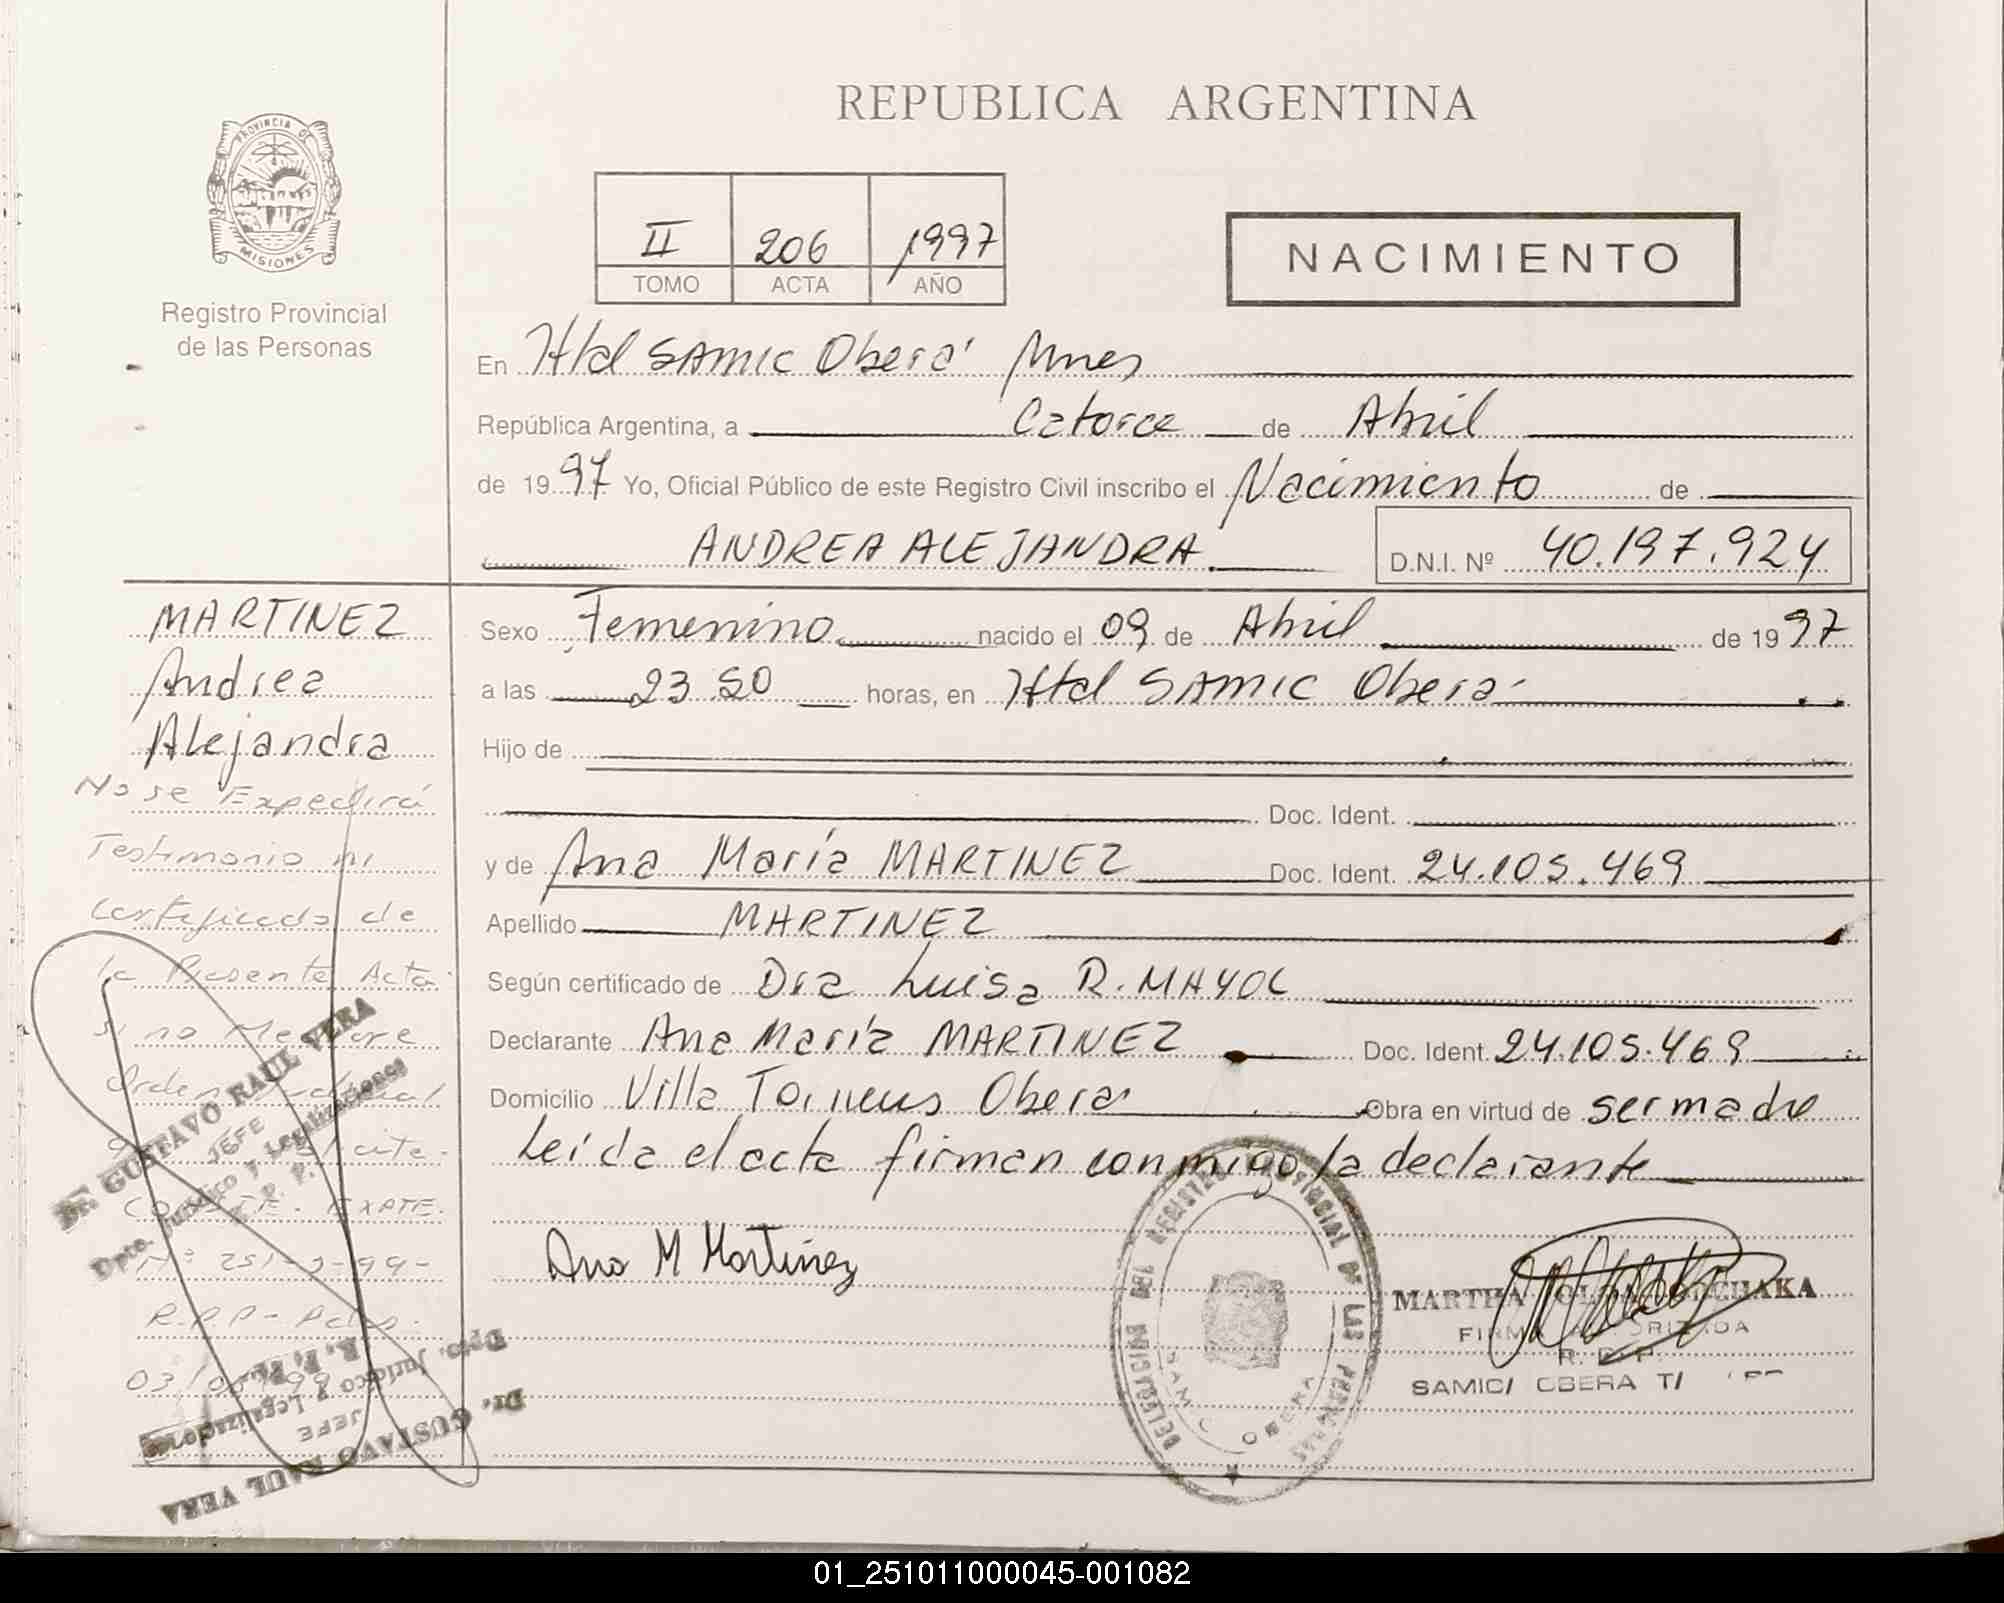 REPUBLICA ARGENTINA
PROVINCIA DE
MISIONES
Registro Provincial
de las Personas
II 206 1997
TOMO ACTA AÑO
NACIMIENTO
En Htal SAMIC Oberá Mnes
República Argentina, a Catorce de Abril
de 1997 Yo, Oficial Público de este Registro Civil inscribo el Nacimiento de
ANDREA ALEJANDRA D.N.I. Nº 40.197.924
MARTINEZ
Andrea
Alejandra
No se Expedirá
Testimonio ni
Certificado de
la Presente Acta
si no Mediare
Orden Judicial
que
CONSTE. EXPTE.
Nº 251-J-99-
R.P.P- Pdas.
03/05/99
Dr. GUSTAVO RAUL VERA
JEFE
Dpto. Jurídico y Legalizaciones
R. P. P.
Dr. GUSTAVO RAUL VERA
JEFE
Dpto. Jurídico y Legalizaciones
R. P. P.
Sexo Femenino nacido el 09 de Abril de 1997
a las 23 50 horas, en Htal SAMIC Oberá
Hijo de
Doc. Ident.
y de Ana María MARTINEZ Doc. Ident. 24.105.469
Apellido MARTINEZ
Según certificado de Dra Luisa R. MAYOL
Declarante Ana María MARTINEZ Doc. Ident. 24.105.469
Domicilio Villa Oberá Obra en virtud de ser madre
Leída el acta firman conmigo la declarante
Ana M Martinez
DELEGACION DEL REGISTRO PROVINCIAL DE LAS PERSONAS
SAMIC OBERA
MARTHA
FIRMA AUTORIZADA
R. P. P.
SAMIC/ OBERA T/
01_251011000045-001082